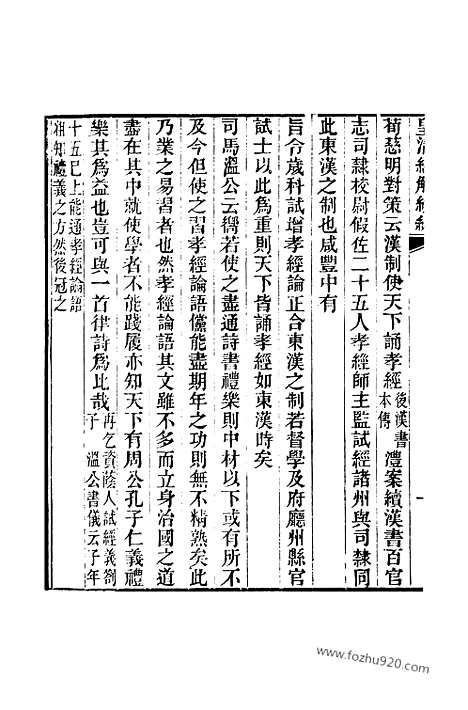 皇清經解續編
荀慈明對策云漢制使天下誦孝經後漢書本傳澧案續漢書百官
志司隸校尉假佐二十五人孝經師主監試經諸州與司隸同
此東漢之制也咸豐中有
旨令歲科試增孝經論正合東漢之制若督學及府廳州縣官
試士以此為重則天下皆誦孝經如東漢時矣
司馬溫公云曏若使之盡通詩書禮樂則中材以下或有所不
及今但使之習孝經論語儻能盡期年之功則無不精熟矣此
乃業之易習者也然孝經論語其文雖不多而立身治國之道
盡在其中就使學者不能踐履亦知天下有周公孔子仁義禮
樂其為益也豈可與一首律詩為比哉再乞資蔭人試經義劄子 溫公書儀云子年
十五已上能通孝經論語
粗知禮義之方然後冠之
www.fozhu920.com